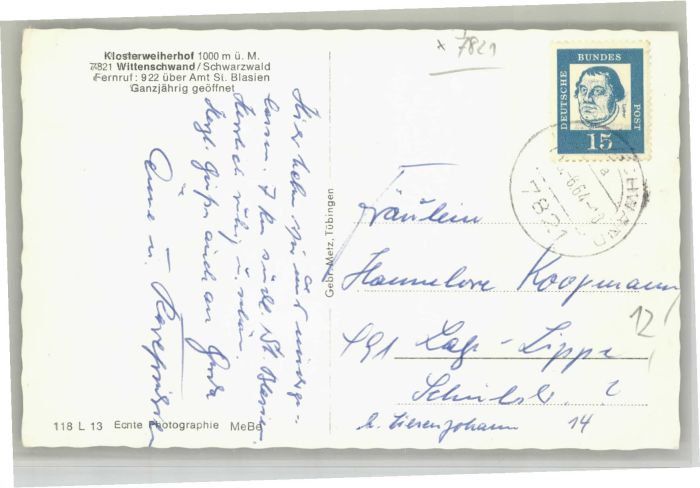 Klosterweiherhof 1000 m ü. M.
7821 Wittenschwand/Schwarzwald
Fernruf: 922 über Amt St. Blasien
Ganzjährig geöffnet
x 7821
DEUTSCHE BUNDES POST
15
7821
Hier haben wir uns
lassen. 7 km südl. St. Blasien.
Herrlich ruhig u. schön.
Herzl. Grüße auch an
Gebr. Metz, Tübingen
Fräulein
Hannelore Koopmann
491 Lage-Lippe
Schulstr. 2
b. Lierenjohann 14
12
118 L 13 Echte Photographie MeBe